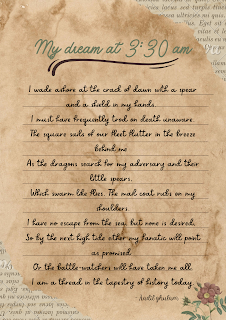 My dream at 3:30 am
I wade ashore at the crack of dawn with a spear
and a shield in my hands.
I must have frequently trod on death unaware.
The square sails of our fleet flutter in the breeze
behind me
As the dragons search for my adversary and their
little spears.
Which swarm like flies. The mail coat rubs on my
shoulders.
I have no escape from the sea, but none is desired,
So by the next high tide either my fanatic will point
as promised
Or the battle-watchers will have taken me all
I am a thread in the tapestry of history today.